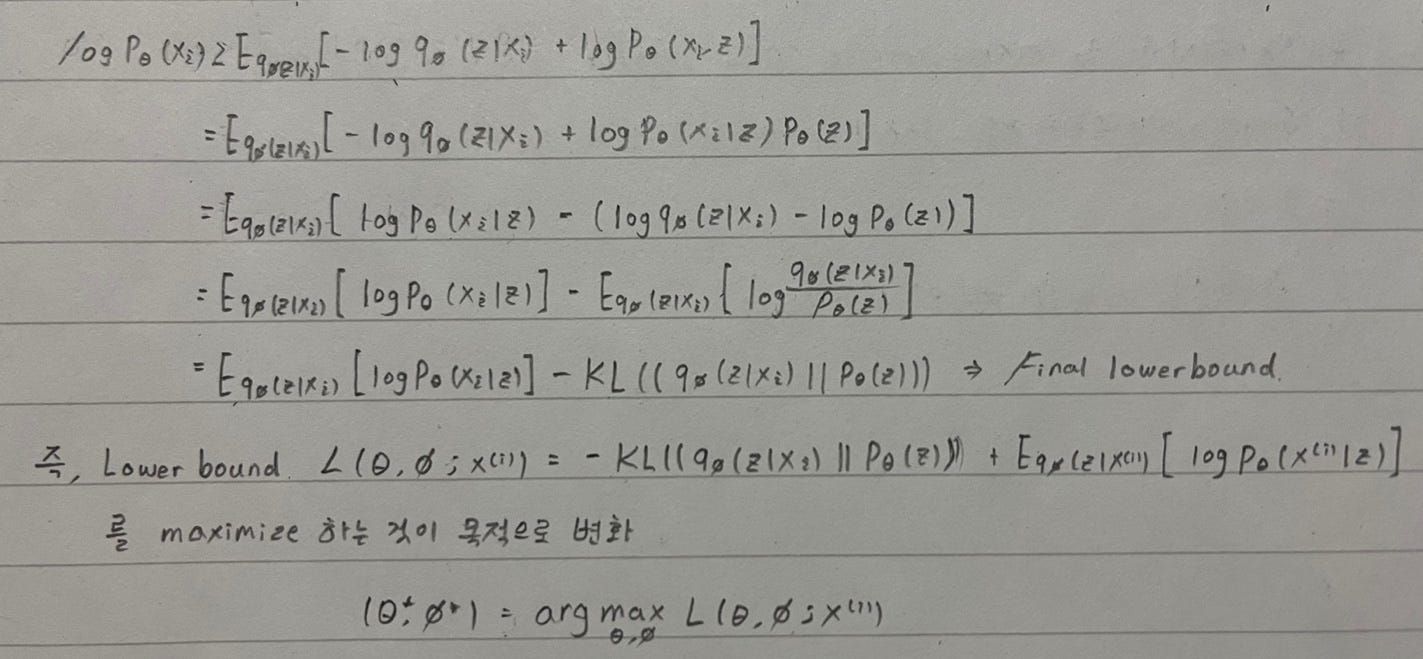 log Pθ(xi) ≥ E_qφ(z|xi)[- log qφ(z|xi) + log Pθ(xi, z)]
= E_qφ(z|xi)[- log qφ(z|xi) + log Pθ(xi|z) Pθ(z)]
= E_qφ(z|xi)[log Pθ(xi|z) - (log qφ(z|xi) - log Pθ(z))]
= E_qφ(z|xi)[log Pθ(xi|z)] - E_qφ(z|xi)[log qφ(z|xi) / Pθ(z)]
= E_qφ(z|xi)[log Pθ(xi|z)] - KL((qφ(z|xi) || Pθ(z))) ⇒ Final lowerbound.
즉, Lower bound. L(θ, φ; x⁽ⁱ⁾) = - KL((qφ(z|xi) || Pθ(z))) + E_qφ(z|x⁽ⁱ⁾)[log Pθ(x⁽ⁱ⁾|z)]
를 maximize 하는 것이 목적으로 변화
(θ*, φ*) = arg max_θ,φ L(θ, φ; x⁽ⁱ⁾)